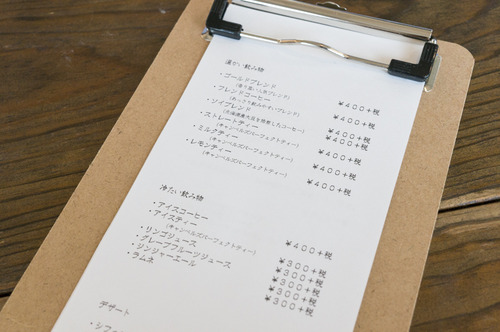 温かい飲み物
・ゴールドブレンド ￥４００＋税
(香り高い人気ブレンド)
・フレンドコーヒー ￥４００＋税
(あっさり飲みやすいブレンド)
・ソイブレンド ￥４００＋税
(北海道産大豆を焙煎したコーヒー)
・ストレートティー ￥４００＋税
(キャンベルズパーフェクトティー)
・ミルクティー ￥４００＋税
(キャンベルズパーフェクトティー)
・レモンティー ￥４００＋税
(キャンベルズパーフェクトティー)
冷たい飲み物
・アイスコーヒー ￥４００＋税
・アイスティー ￥３００＋税
(キャンベルズパーフェクトティー)
・リンゴジュース ￥３００＋税
・グレープフルーツジュース ￥３００＋税
・ジンジャーエール ￥３００＋税
・ラムネ ￥３００＋税
デザート
・シフォ